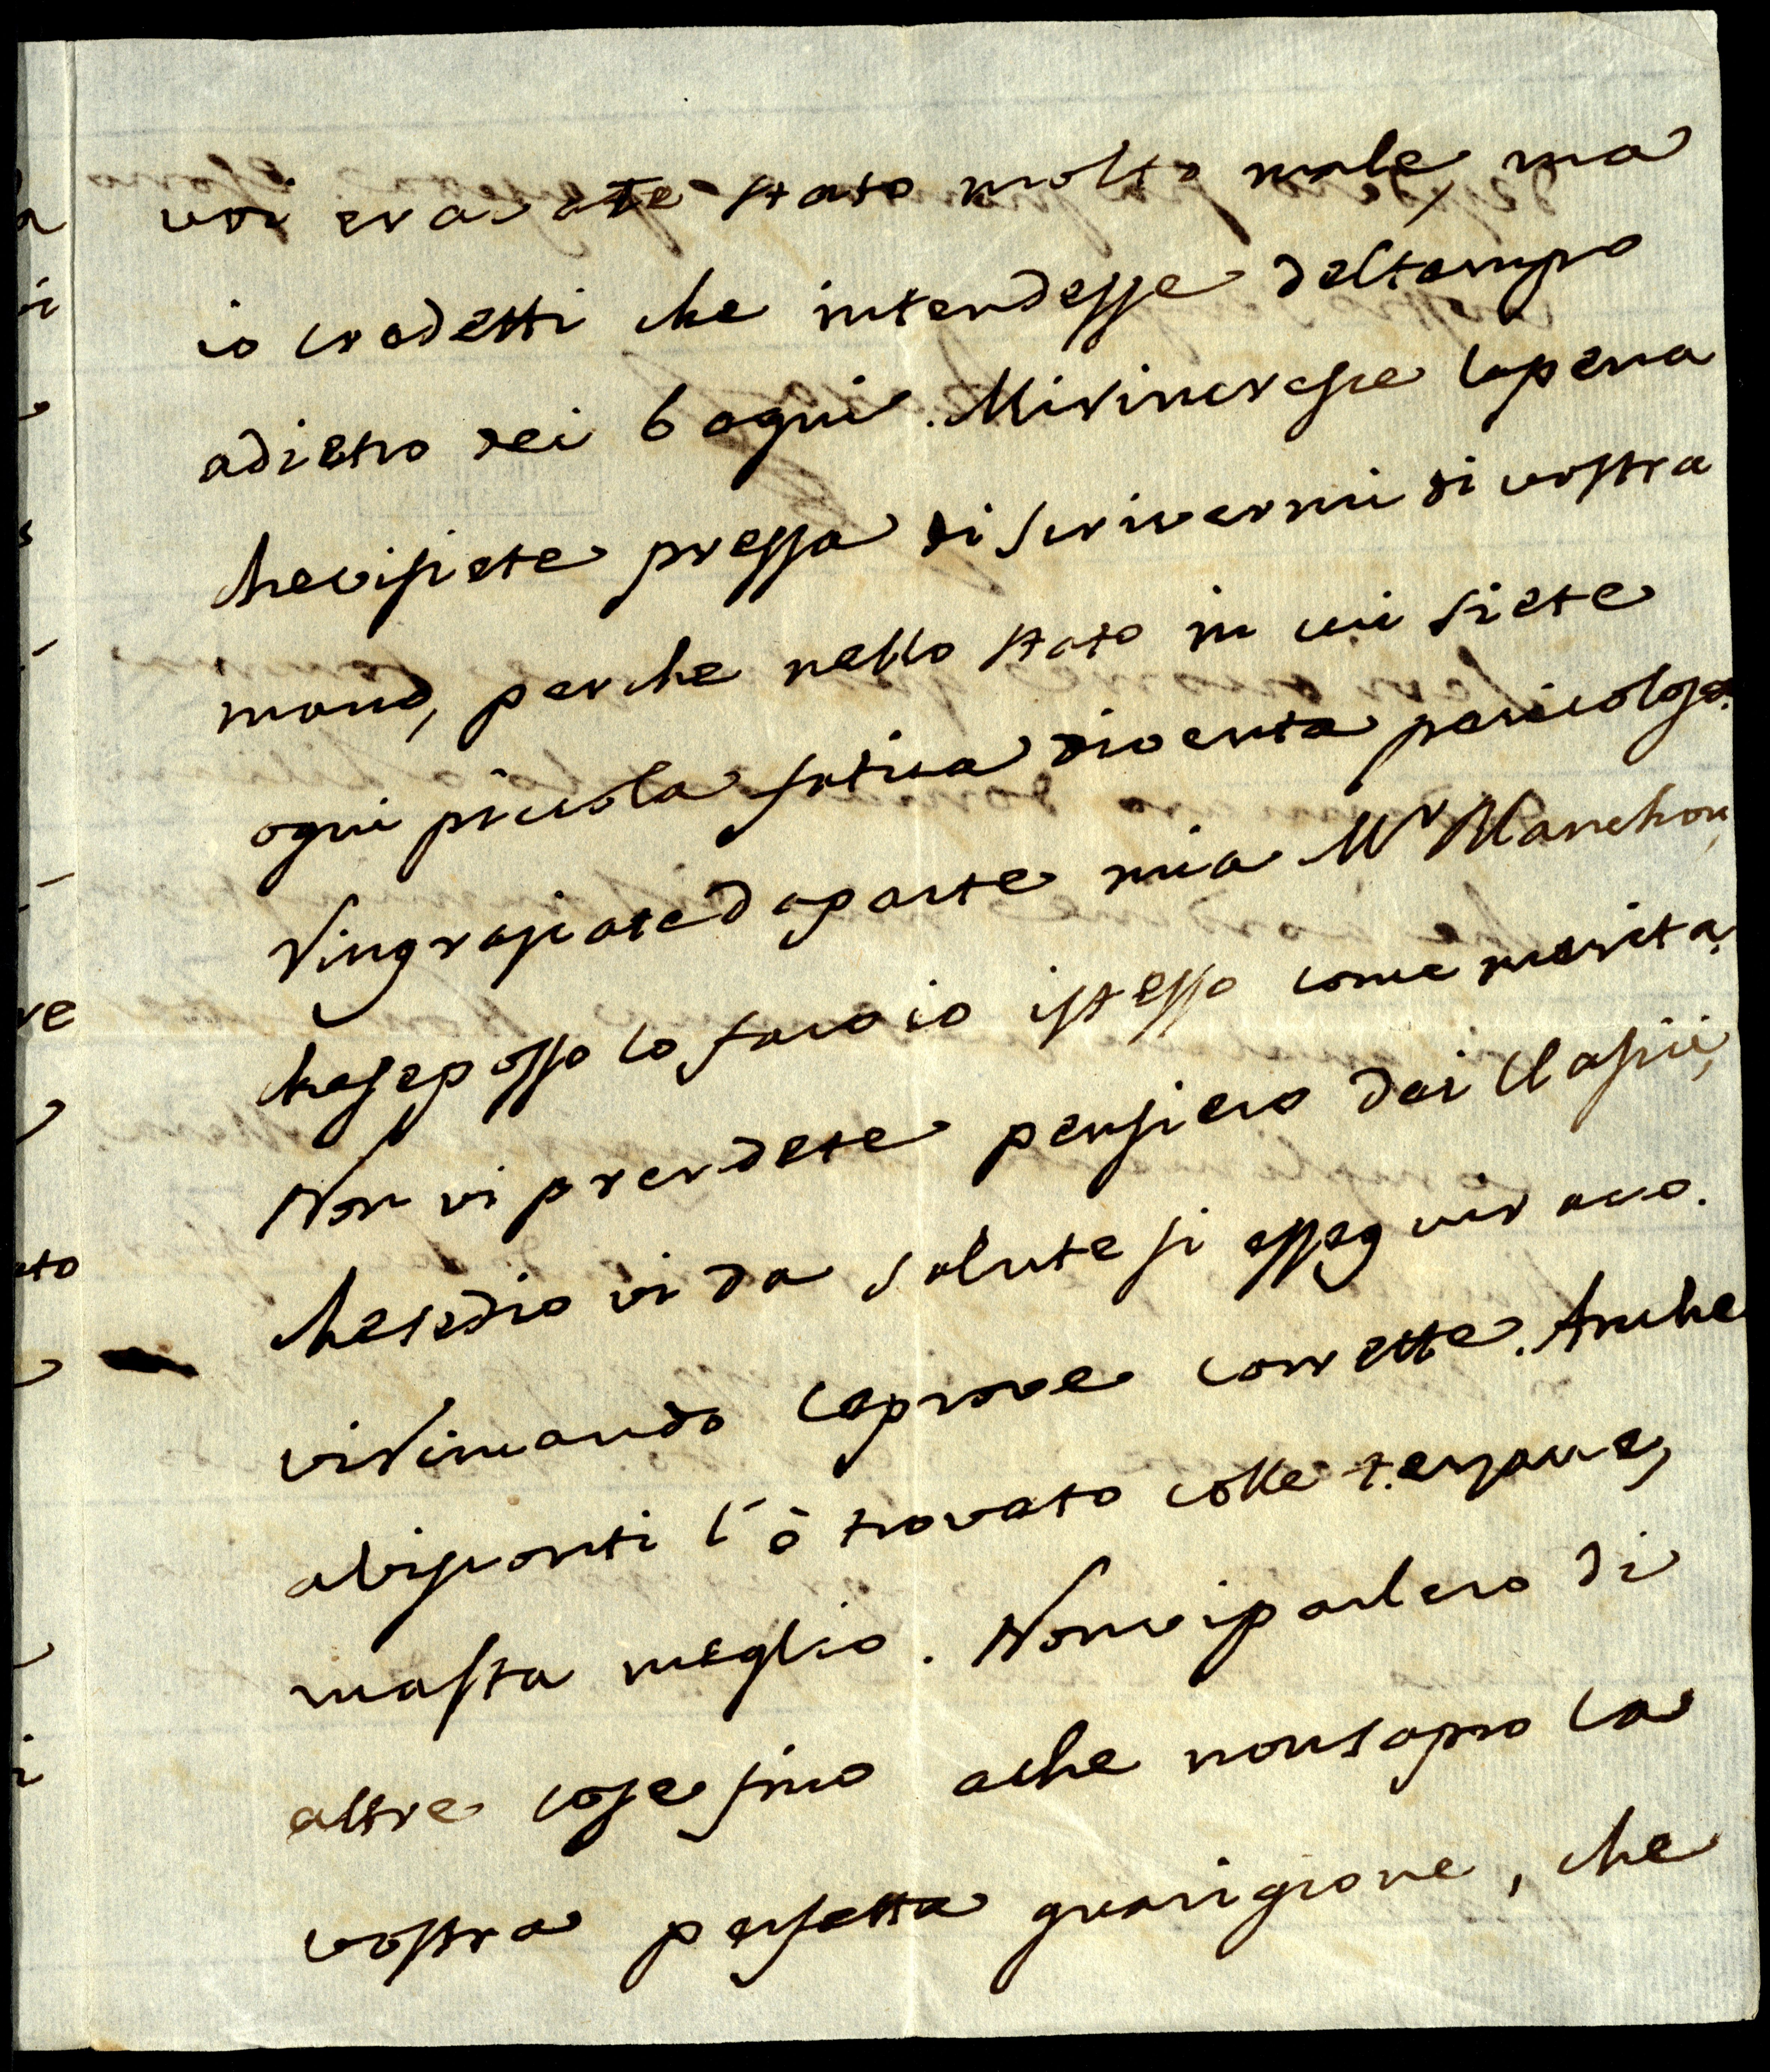 voi eravate stato molto male, ma
io credetti che intendesse deltempo
adietro dei bagni. Mirincresce lapena
chevisiete pressa di scrivermi di vostra
mano, perche nello stato in cui siete
ogni piccola fatica diventa pericolosa.
Ringrasiatedaparte mia Mr Manchon,
cheseposso lo faccio istesso come merita.
Non vi prendete pensiero dei Clasici,
chesedio vi da salute si esseguirano.
viRimando leprove corrette. Anche
alvisconti l'ò trovato colle terzane,
masta meglio. Nonviparlero di
altre cose fino ache nonsapro la
vostra perfetta guarigione, che